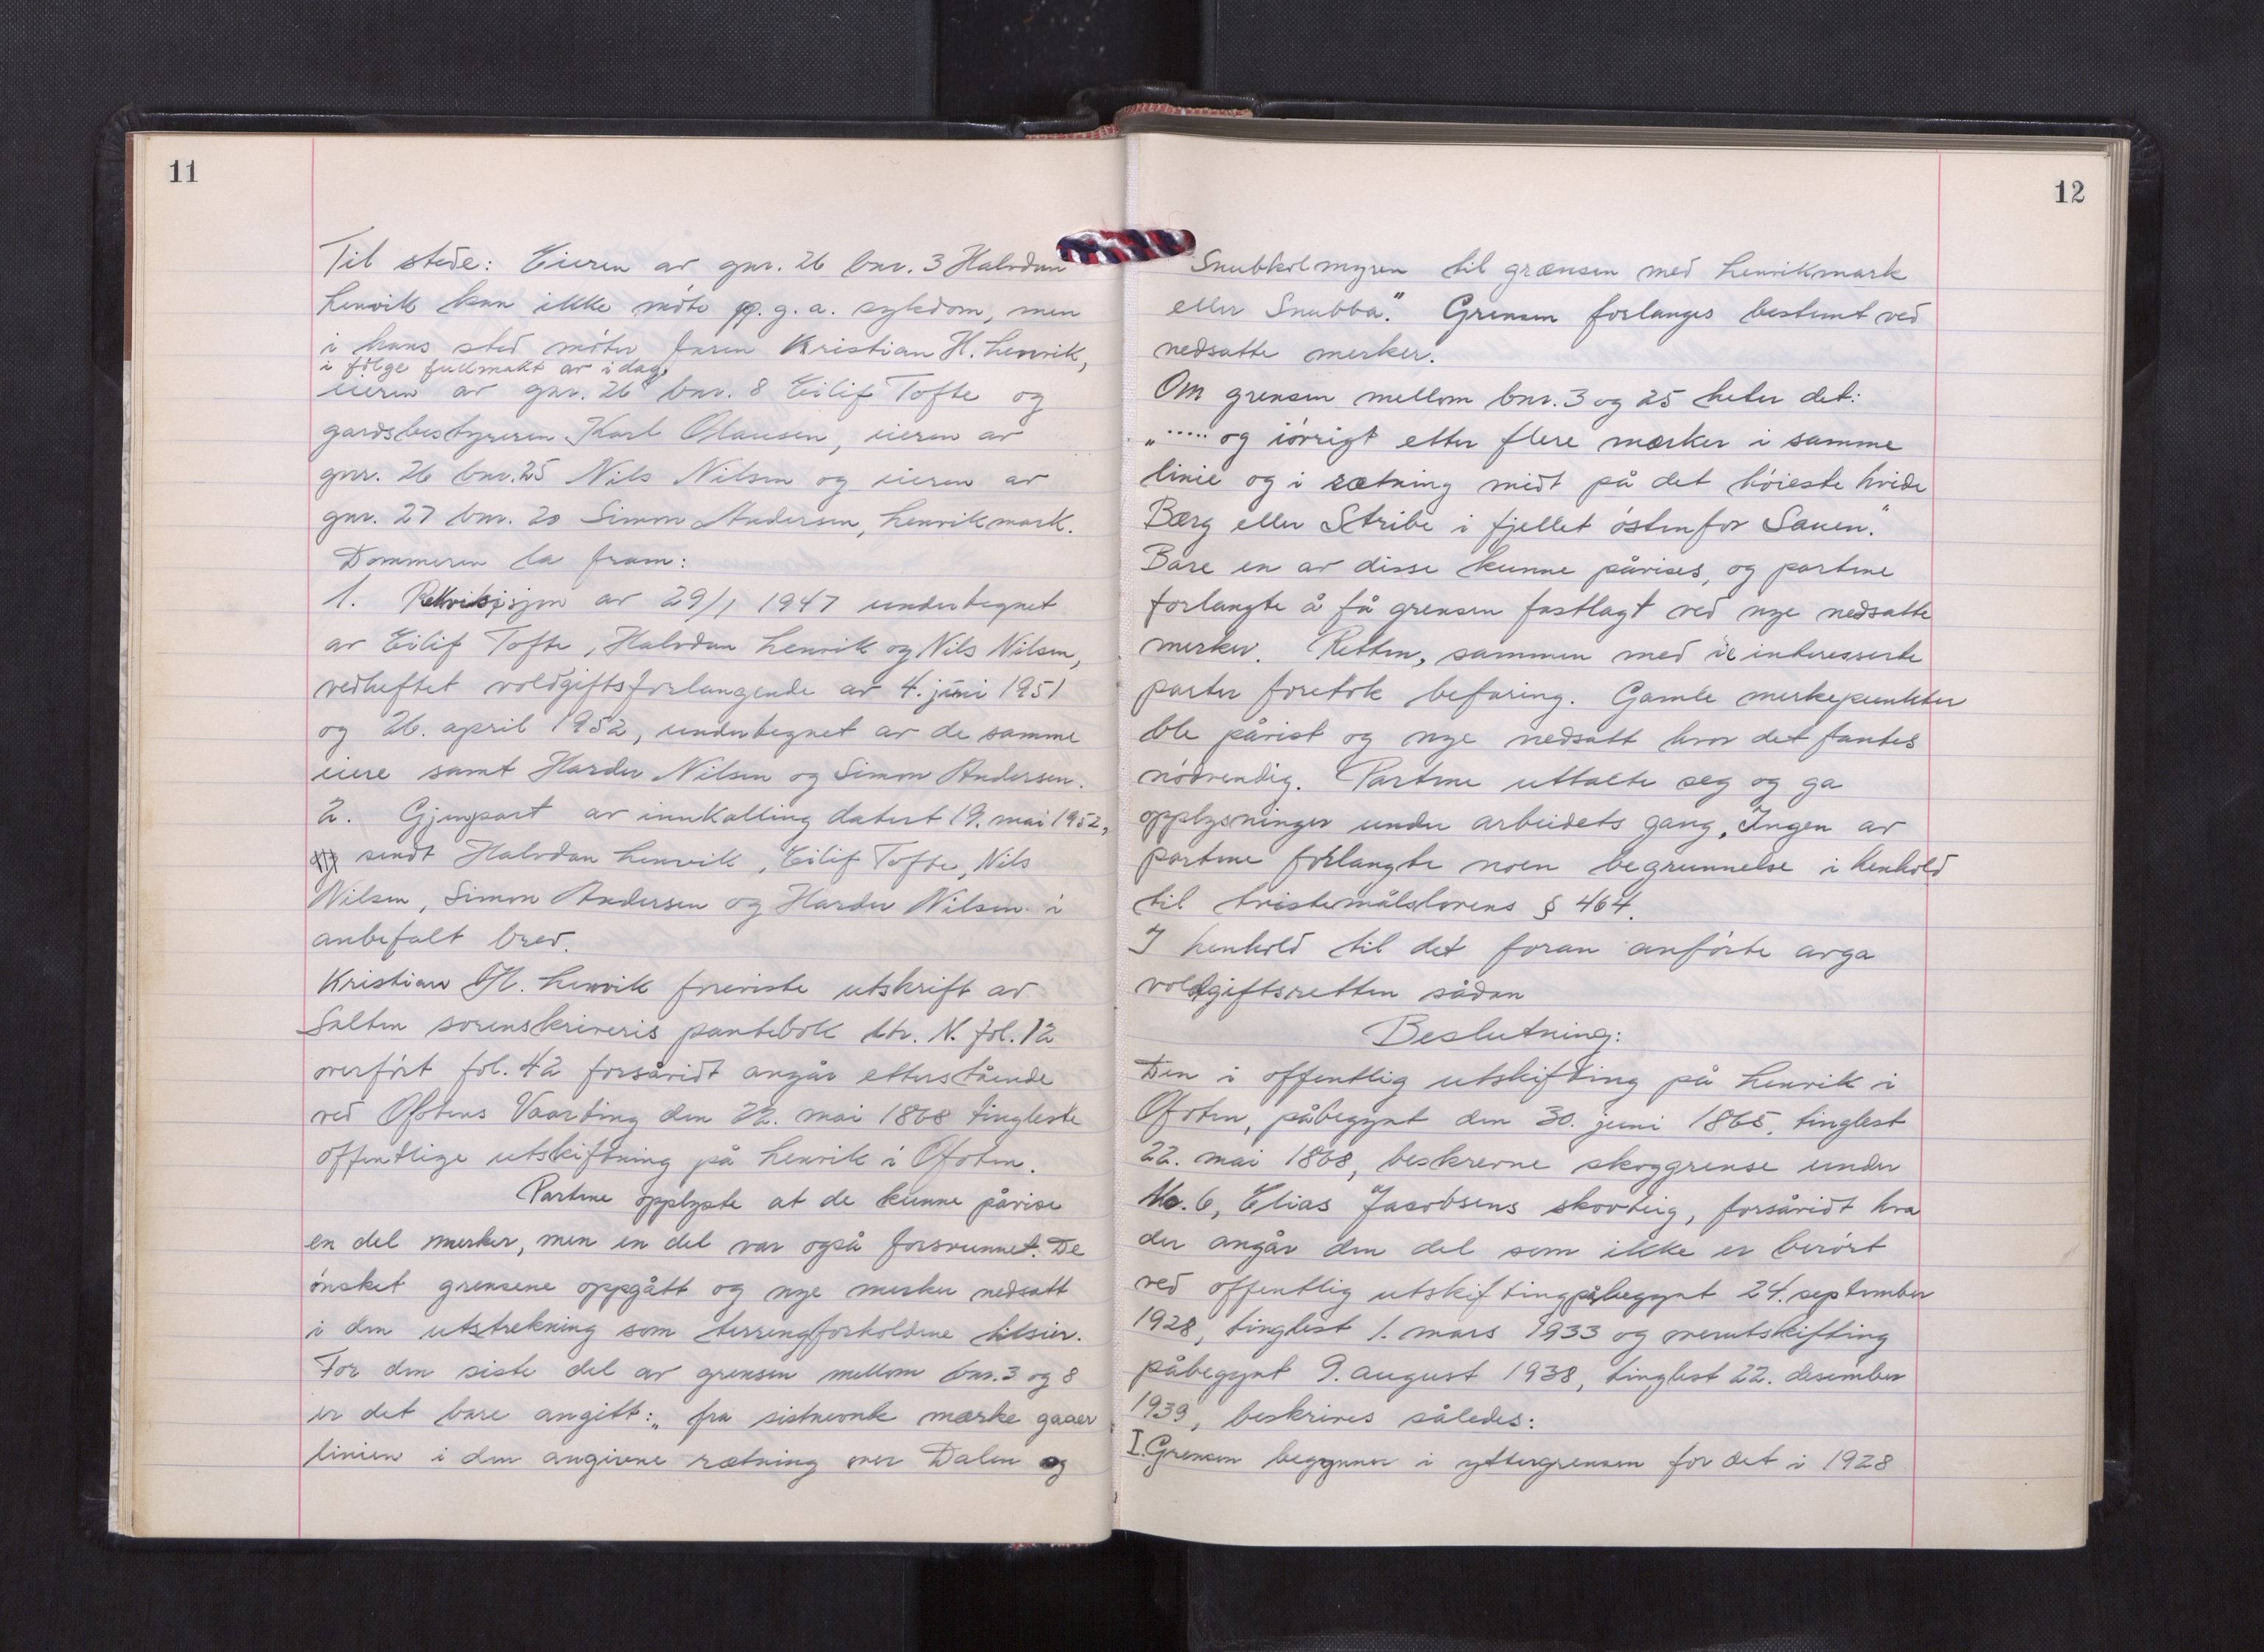 11
Til stede: Eieren av gnr. 26 bnr. 3 Halvdan
Lenvik kan ikke møte p.g.a. sykdom, men
i hans sted møter faren Kristian H. Lenvik,
i følge fullmakt av idag,
eieren av gnr. 26 bnr. 8 Eilif Tofte og
gardsbestyreren Karl Olausen, eieren av
gnr. 26 bnr. 25 Nils Nilsen og eieren av
gnr. 27 bnr. 20 Simon Andersen, Lenvikmark.
Dommeren la fram:
1. Rekvisisjon av 29/1 1947 undertegnet
av Eilif Tofte, Halvdan Lenvik og Nils Nilsen,
vedheftet voldgiftsforlangende av 4. juni 1951
og 26. april 1952, undertegnet av de samme
eiere samt Harder Nilsen og Simon Andersen.
2. Gjenpart av innkalling datert 19. mai 1952,
sendt Halvdan Lenvik, Eilif Tofte, Nils
Nilsen, Simon Andersen og Harder Nilsen i
anbefalt brev.
Kristian H. Lenvik foreviste utskrift av
Salten sorenskriveris pantebok ltr. N. fol. 12
overført fol. 42 forsåvidt angår etterstående
ved Ofotens Vaarting den 22. mai 1868 tingleste
offentlige utskiftning på Lenvik i Ofoten.
Partene opplyste at de kunne påvise
en del merker, men en del var også forsvunnet. De
ønsket grensene oppgått og nye merker nedsatt
i den utstrekning som terrengforholdene tilsier.
For den siste del av grensen mellom bnr. 3 og 8
er det bare angitt: „fra sistnevnte mærke gaaer
linien i den angivne rætning over Dalen og
12
Snubkolmyren til grænsen med Lenvikmark
eller Snubba." Grensen forlanges bestemt ved
nedsatte merker.
Om grensen mellom bnr. 3 og 25 heter det:
„..... og iøvrigt etter flere mærker i samme
linie og i rætning midt på det høieste hvide
Bærg eller Stribe i fjellet østenfor Sauen."
Bare en av disse kunne påvises, og partene
forlangte å få grensen fastlagt ved nye nedsatte
merker. Retten, sammen med de interesserte
parter foretok befaring. Gamle merkepunkter
ble påvist og nye nedsatt hvor det fantes
nødvendig. Partene uttalte seg og ga
opplysninger under arbeidets gang. Ingen av
partene forlangte noen begrunnelse i henhold
til tvistemålslovens § 464.
I henhold til det foran anførte avga
voldgiftsretten sådan
Beslutning:
Den i offentlig utskifting på Lenvik i
Ofoten, påbegynt den 30. juni 1865, tinglest
22. mai 1868, beskrevne skoggrense under
No. 6, Elias Jacobsens skovteig, forsåvidt hva
der angår den del som ikke er berørt
ved offentlig utskifting påbegynt 24. september
1928, tinglest 1. mars 1933 og overutskifting
påbegynt 9. august 1938, tinglest 22. desember
1939, beskrives således:
I. Grensen begynner i yttergrensen for det i 1928